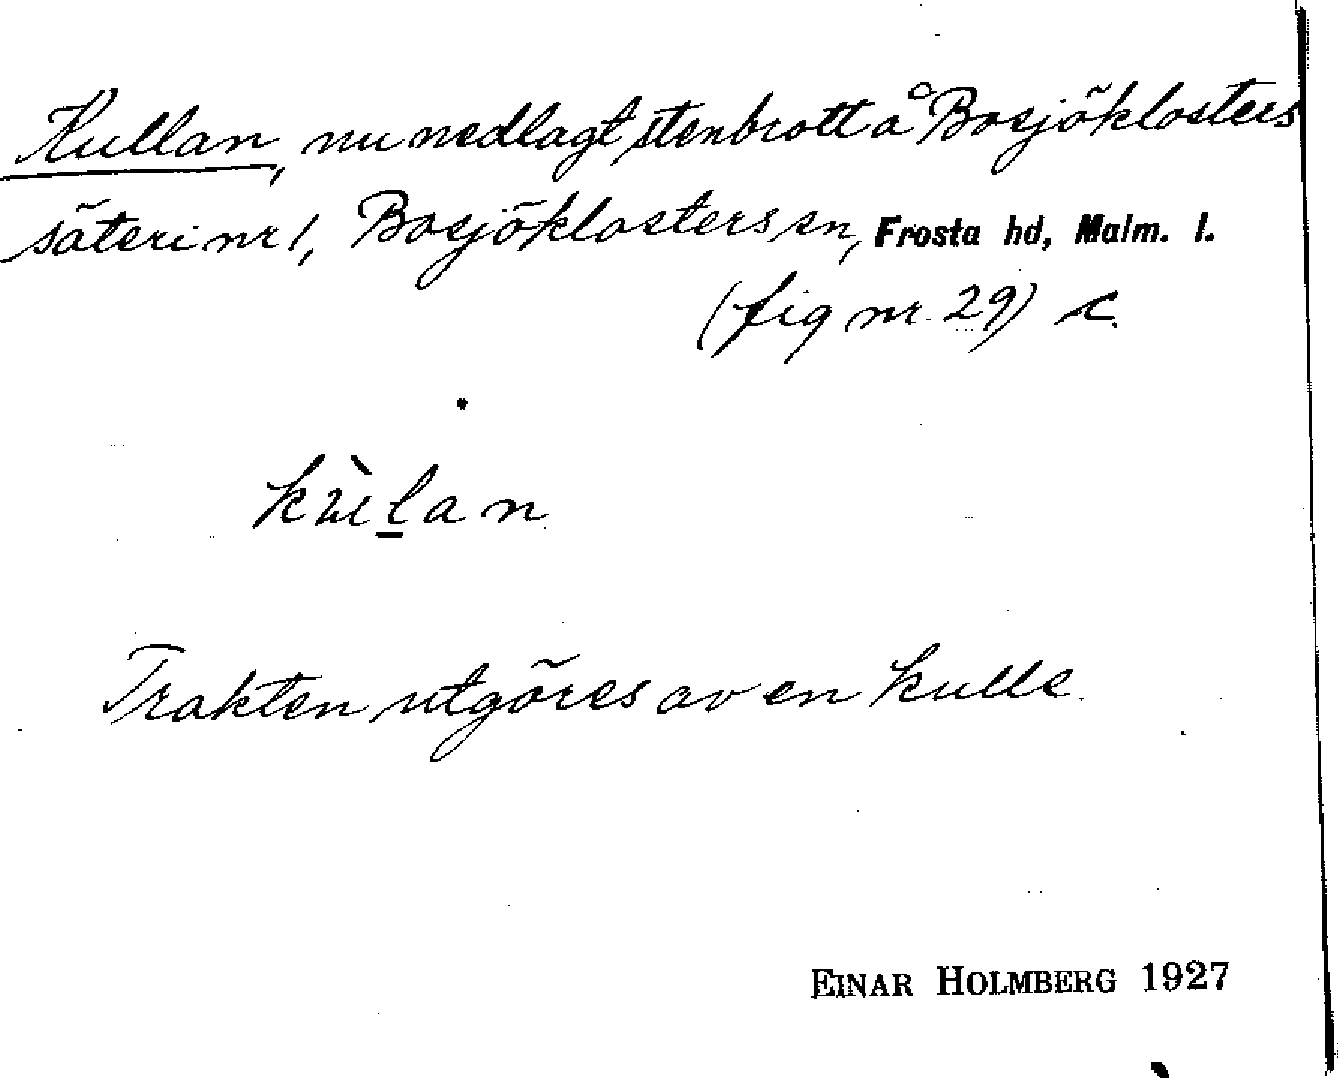 Kullan, nu nedlagt stenbrott å Bosjöklosters
säteri nr 1, Bosjöklosters sn, Frosta hd, Malm. l.
(fig nr 29) c.
kùlan
Trakten utgöres av en kulle.
EINAR HOLMBERG 1927